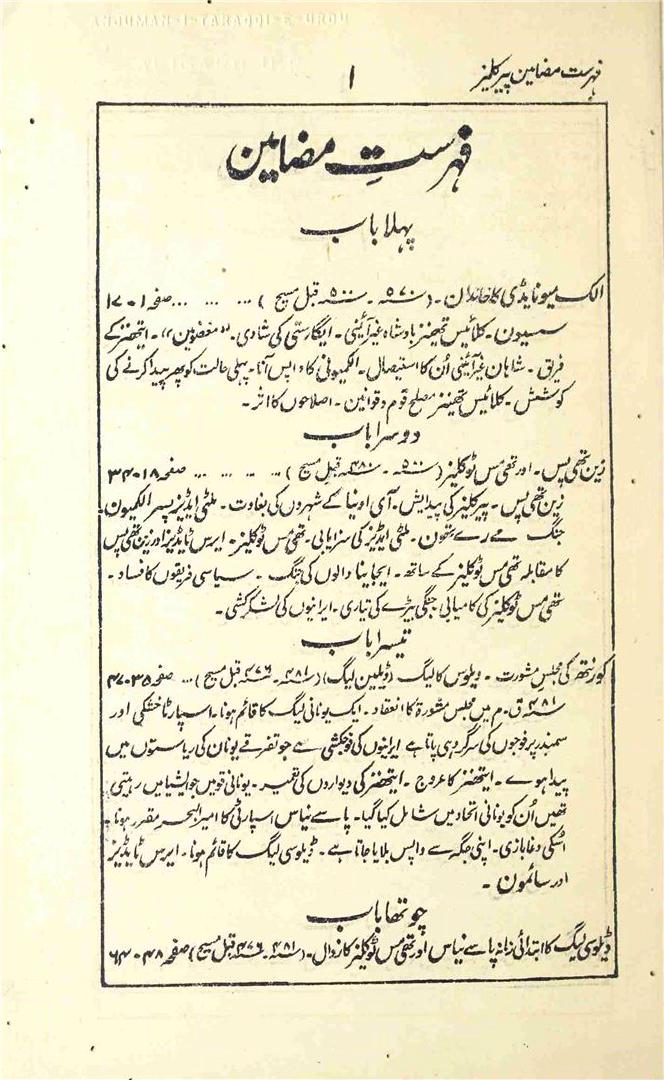 ANJUMAN-I-TARAQQI-E-URDU
فہرست مضامین پیرکلیز
۱
فہرستِ مضامین
پہلا باب
الک میونایڈی کا خاندان۔ (۵۷۰؁ ۔ ۵۰۰؁ قبل مسیح) ... ... ... صفحہ ۱۔۱۷
سسیون۔ کلائیس تھینز بادشاہ غیر آئینی۔ ایگارسٹی کی شادی۔ "مغضوبین"۔ ایتھنز کے
فریق۔ شاہان غیر آئینی اُن کا استیصال۔ الکمیونی کا واپس آنا۔ پہلی حالت کو پھر پیدا کرنے کی
کوشش۔ کلائیس تھینز مصلح قوم و قوانین۔ اصلاحوں کا اثر۔
دوسرا باب
زین تھی پس۔ اور تھی مس ٹوکلیز (۵۰۰؁ ۔ ۴۸۰؁ قبل مسیح) ... ... ... ... صفحہ ۱۸۔۳۴
زین تھی پس۔ پیرکلیز کی پیدایش۔ آی اونیا کے شہروں کی بغاوت۔ ملٹی ایڈیز پسر الکمیون۔
جنگ مے رے تھون۔ ملٹی ایڈیز کی سزایابی۔ تھی مس ٹوکلیز۔ ایرس ٹایڈیز اور زین تھی پس
کا مقابلہ تھی مس ٹوکلیز کے ساتھ۔ ایجاینا والوں کی جنگ۔ سیاسی فریقوں کا فساد۔
تھی مس ٹوکلیز کی کامیابی جنگی بیڑے کی تیاری۔ ایرانیوں کی لشکر کشی۔
تیسرا باب
کورنتھ کی مجلس مشورت۔ ڈیلوس کا لیگ (ڈیلین لیگ) (۴۸۱؁ ۔ ۴۷۶؁ قبل مسیح) ... صفحہ ۳۵۔۴۷
۴۸۱؁ ق۔م میں مجلس مشورۃ کا انعقاد۔ ایک یونانی لیگ کا قائم ہونا۔ اسپارٹا خشکی اور
سمندر پر فوجوں کی سرگروہی پاتا ہے ایرانیوں کی فوجکشی سے جو تفرقے یونان کی ریاستوں میں
پیدا ہوے۔ ایتھنز کا عروج۔ ایتھنز کی دیواروں کی تعمیر۔ یونانی قومیں جو ایشیا میں رہتی
تھیں اُن کو یونانی اتحاد میں شامل کیا گیا۔ پاسے نیاس اسپارٹی کا امیر البحر مقرر ہونا۔
اسکی دغابازی۔ اپنی جگہ سے واپس بلایا جاتا ہے۔ ڈیلوسی لیگ کا قائم ہونا۔ ایرس ٹایڈیز
اور سائمون۔
چوتھا باب
ڈیلوسی لیگ کا ابتدائی زمانہ پاسے نیاس اور تھی مس ٹوکلیز کا زوال۔ (۴۸۱؁ ۔ ۴۷۶؁ قبل مسیح) صفحہ ۴۸۔۶۴